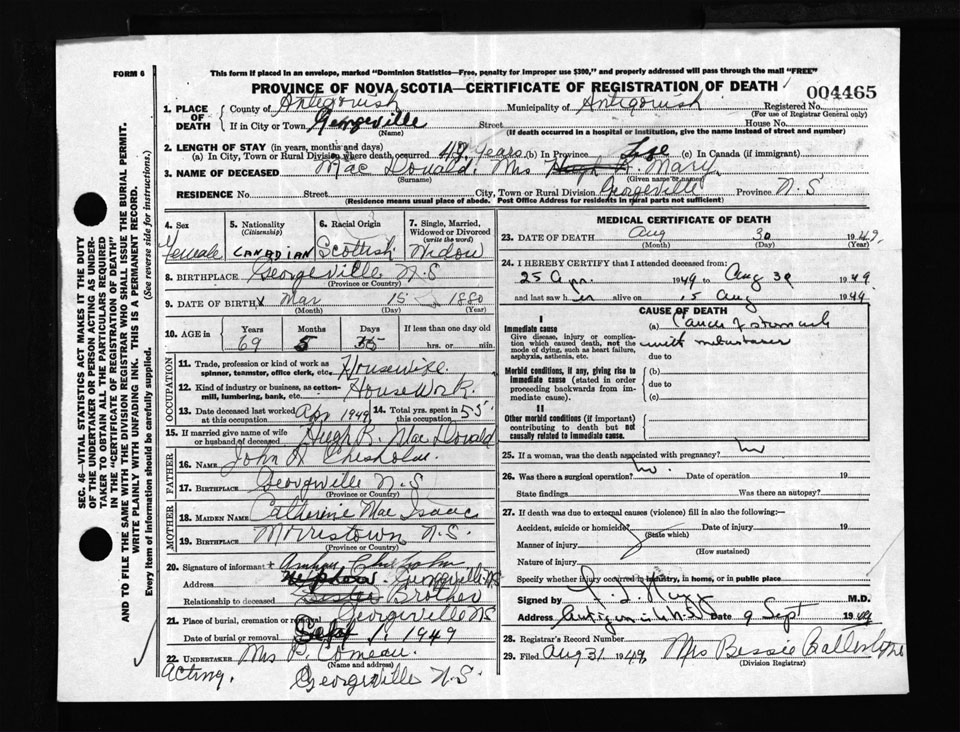 FORM 6
This form if placed in an envelope, marked "Dominion Statistics—Free, penalty for improper use $300," and properly addressed will pass through the mail "FREE"
PROVINCE OF NOVA SCOTIA—CERTIFICATE OF REGISTRATION OF DEATH
004465
1. PLACE OF DEATH
County of Antigonish Municipality of Antigonish Registered No.
(For use of Registrar General only)
If in City or Town Georgeville Street House No.
(Name) (If death occurred in a hospital or institution, give the name instead of street and number)
2. LENGTH OF STAY (in years, months and days)
(a) In City, Town or Rural Division where death occurred 49 years (b) In Province Life (c) In Canada (if immigrant)
3. NAME OF DECEASED Mac Donald, Mrs Hugh B. Mary
(Surname) (Given name or names)
RESIDENCE No. Street City, Town or Rural Division Georgeville Province N.S
(Residence means usual place of abode. Post Office Address for residents in rural parts not sufficient)
4. Sex Female
5. Nationality (Citizenship) CANADIAN
6. Racial Origin Scottish
7. Single, Married, Widowed or Divorced (write the word) Widow
8. BIRTHPLACE Georgeville N.S
(Province or Country)
9. DATE OF BIRTH Mar 15 1880
(Month) (Day) (Year)
10. AGE in Years Months Days If less than one day old
69 5 15 hrs. or min.
OCCUPATION
11. Trade, profession or kind of work as spinner, teamster, office clerk, etc. Housewife
12. Kind of industry or business, as cotton-mill, lumbering, bank, etc. HouseWork.
13. Date deceased last worked at this occupation Apr 1949
14. Total yrs. spent in this occupation 55
15. If married give name of wife or husband of deceased Hugh B. Mac Donald
FATHER
16. NAME John A Chisholm
17. BIRTHPLACE Georgeville N.S
(Province or Country)
MOTHER
18. MAIDEN NAME Catherine Mac Isaac
19. BIRTHPLACE Morristown N.S.
(Province or Country)
20. Signature of informant Chisholm
Address Nephew. Georgeville N.S
Relationship to deceased Sister Brother
21. Place of burial, cremation or removal Georgeville N.S
Date of burial or removal Sept 1, 1949
22. UNDERTAKER Mrs P. Comeau.
(Name and address)
Acting. Georgeville N.S.
MEDICAL CERTIFICATE OF DEATH
23. DATE OF DEATH Aug 30 1949.
(Month) (Day) (Year)
24. I HEREBY CERTIFY that I attended deceased from:
25 Apr. 1949 to Aug 30 1949
and last saw her alive on 15 Aug 1949
CAUSE OF DEATH
I
Immediate cause
Give disease, injury or complication which caused death, not the mode of dying, such as heart failure, asphyxia, asthenia, etc.
(a) Cancer of stomach
with metastases
due to
Morbid conditions, if any, giving rise to immediate cause (stated in order proceeding backwards from immediate cause).
(b)
due to
(c)
II
Other morbid conditions (if important) contributing to death but not causally related to immediate cause.
25. If a woman, was the death associated with pregnancy? No
26. Was there a surgical operation? No. Date of operation 19
State findings Was there an autopsy?
27. If death was due to external causes (violence) fill in also the following:—
Accident, suicide or homicide? Date of injury 19
(State which)
Manner of injury
(How sustained)
Nature of injury
Specify whether injury occurred in industry, in home, or in public place
Signed by M.D.
Address Antigonish N.S. Date 9 Sept 1949
28. Registrar's Record Number
29. Filed Aug 31 1949 Mrs Bessie
(Division Registrar)
SEC. 46—VITAL STATISTICS ACT MAKES IT THE DUTY
OF THE UNDERTAKER OR PERSON ACTING AS UNDER-
TAKER TO OBTAIN ALL THE PARTICULARS REQUIRED
IN THE "CERTIFICATE OF REGISTRATION OF DEATH"
AND TO FILE THE SAME WITH THE DIVISION REGISTRAR WHO SHALL ISSUE THE BURIAL PERMIT.
WRITE PLAINLY WITH UNFADING INK. THIS IS A PERMANENT RECORD.
Every item of information should be carefully supplied. (See reverse side for instructions.)